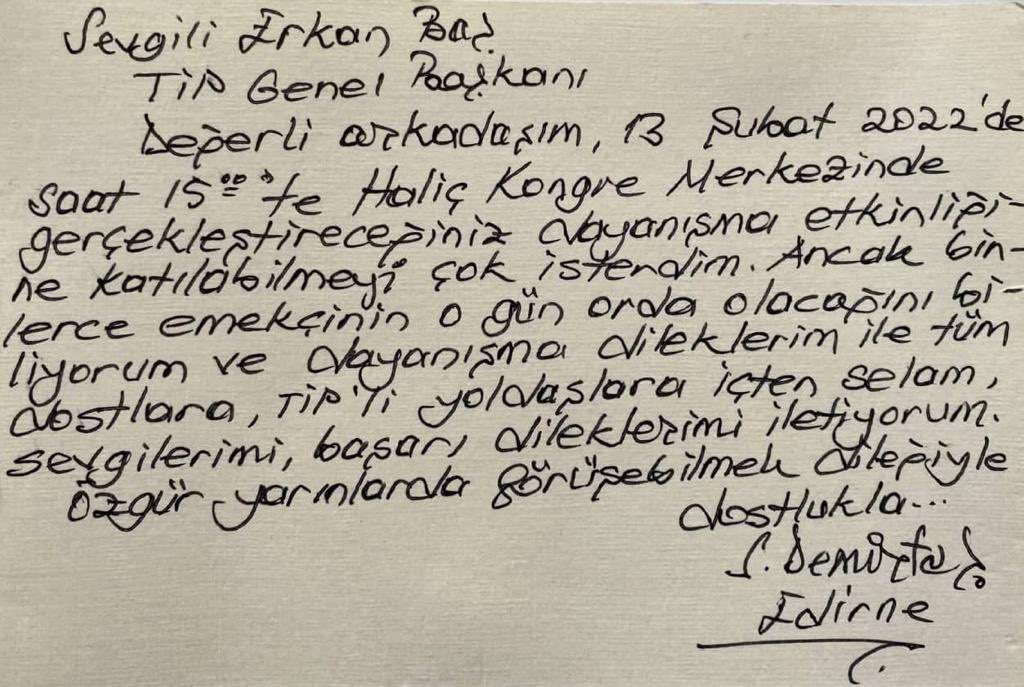 Sevgili Erkan Baş
TİP Genel Başkanı
Değerli arkadaşım, 13 Şubat 2022'de
saat 15.00'te Haliç Kongre Merkezinde
gerçekleştireceğiniz dayanışma etkinliği-
ne katılabilmeyi çok isterdim. Ancak bin-
lerce emekçinin o gün orda olacağını bi-
liyorum ve dayanışma dileklerim ile tüm
dostlara, TİP'li yoldaşlara içten selam,
sevgilerimi, başarı dileklerimi iletiyorum.
Özgür yarınlarda görüşebilmek dileğiyle
dostlukla...
S. Demirtaş
Edirne